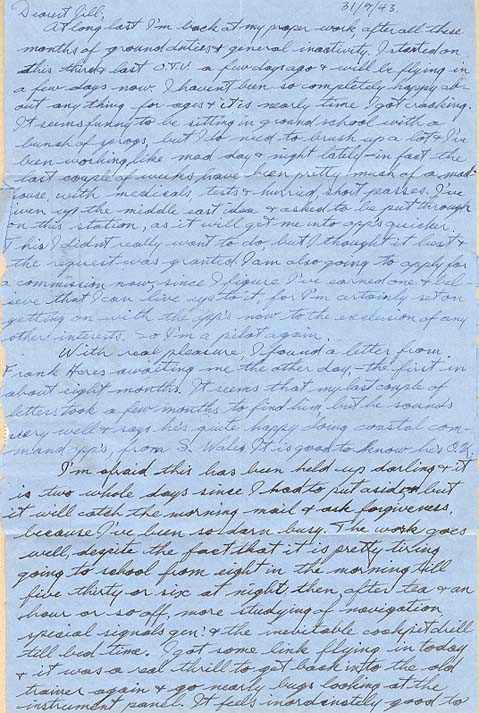 31/7/43.
Dearest Jill;
At long last I'm back at my proper work, after all these
months of ground duties & general inactivity. I started on
this third & last O.T.U. a few days ago & will be flying in
a few days now. I haven't been so completely happy ab-
out any thing for ages & it is nearly time I got cracking.
It seems funny to be sitting in ground school with a
bunch of sprogs, but I do need to brush up a lot & I've
been working like mad day & night lately - in fact the
last couple of weeks have been pretty much of a mad-
house, with medicals, tests & hurried, short passes. I've
given up the middle east idea & asked to be put through
on this station, as it will get me into opp's quicker.
This I didn't really want to do, but I thought it best &
the request was granted. I am also going to apply for
a commission now, since I figure I've earned one & bel-
ieve that I can live up to it, for I'm certainly set on
getting on with the opp's now to the exclusion of any
other interests. So I'm a pilot again.
With real pleasure, I found a letter from
Frank awaiting me the other day, - the first in
about eight months. It seems that my last couple of
letters took a few months to find him but he sounds
very well & says he's quite happy doing coastal com-
mand opp's, from S. Wales. It is good to know he's O.K.
I'm afraid this has been held up darling & it
is two whole days since I had to put aside, but
it will catch the morning mail & ask forgiveness,
because I've been so darn busy. The work goes
well, despite the fact that it is pretty tiring
going to school from eight in the morning till
five thirty or six at night, then, after tea & an
hour or so off, more studying of navigation
special signals gen! & the inevitable cockpit drill
till bed-time. I got some link flying in today
& it was a real thrill to get back into the old
trainer again & go nearly bugs looking at the
instrument panel. It feels inordinately good to